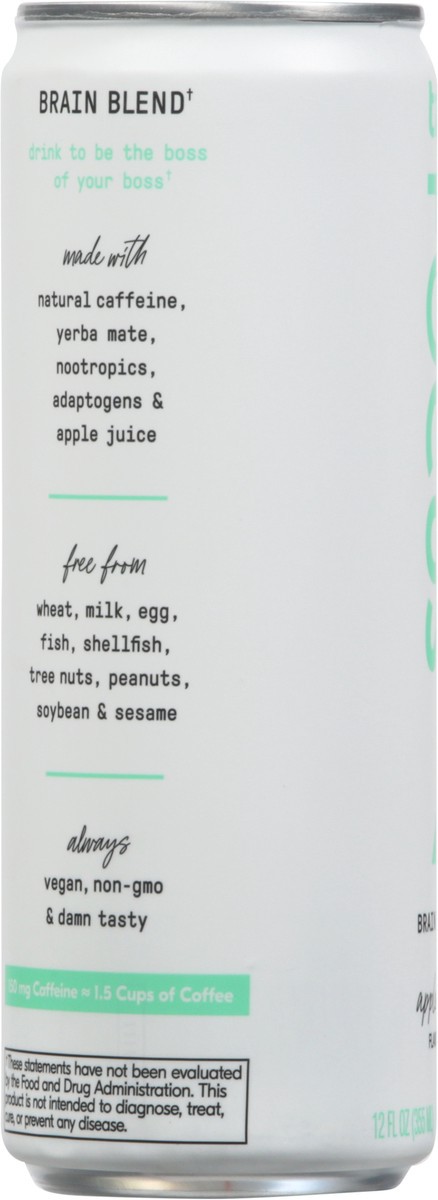 BRAIN BLEND†
drink to be the boss
of your boss†
made with
natural caffeine,
yerba mate,
nootropics,
adaptogens &
apple juice
free from
wheat, milk, egg,
fish, shellfish,
tree nuts, peanuts,
soybean & sesame
always
vegan, non-gmo
& damn tasty
mg Caffeine ≈ 1.5 Cups of Coffee
†These statements have not been evaluated
by the Food and Drug Administration. This
product is not intended to diagnose, treat,
cure, or prevent any disease.
12 FL OZ (355